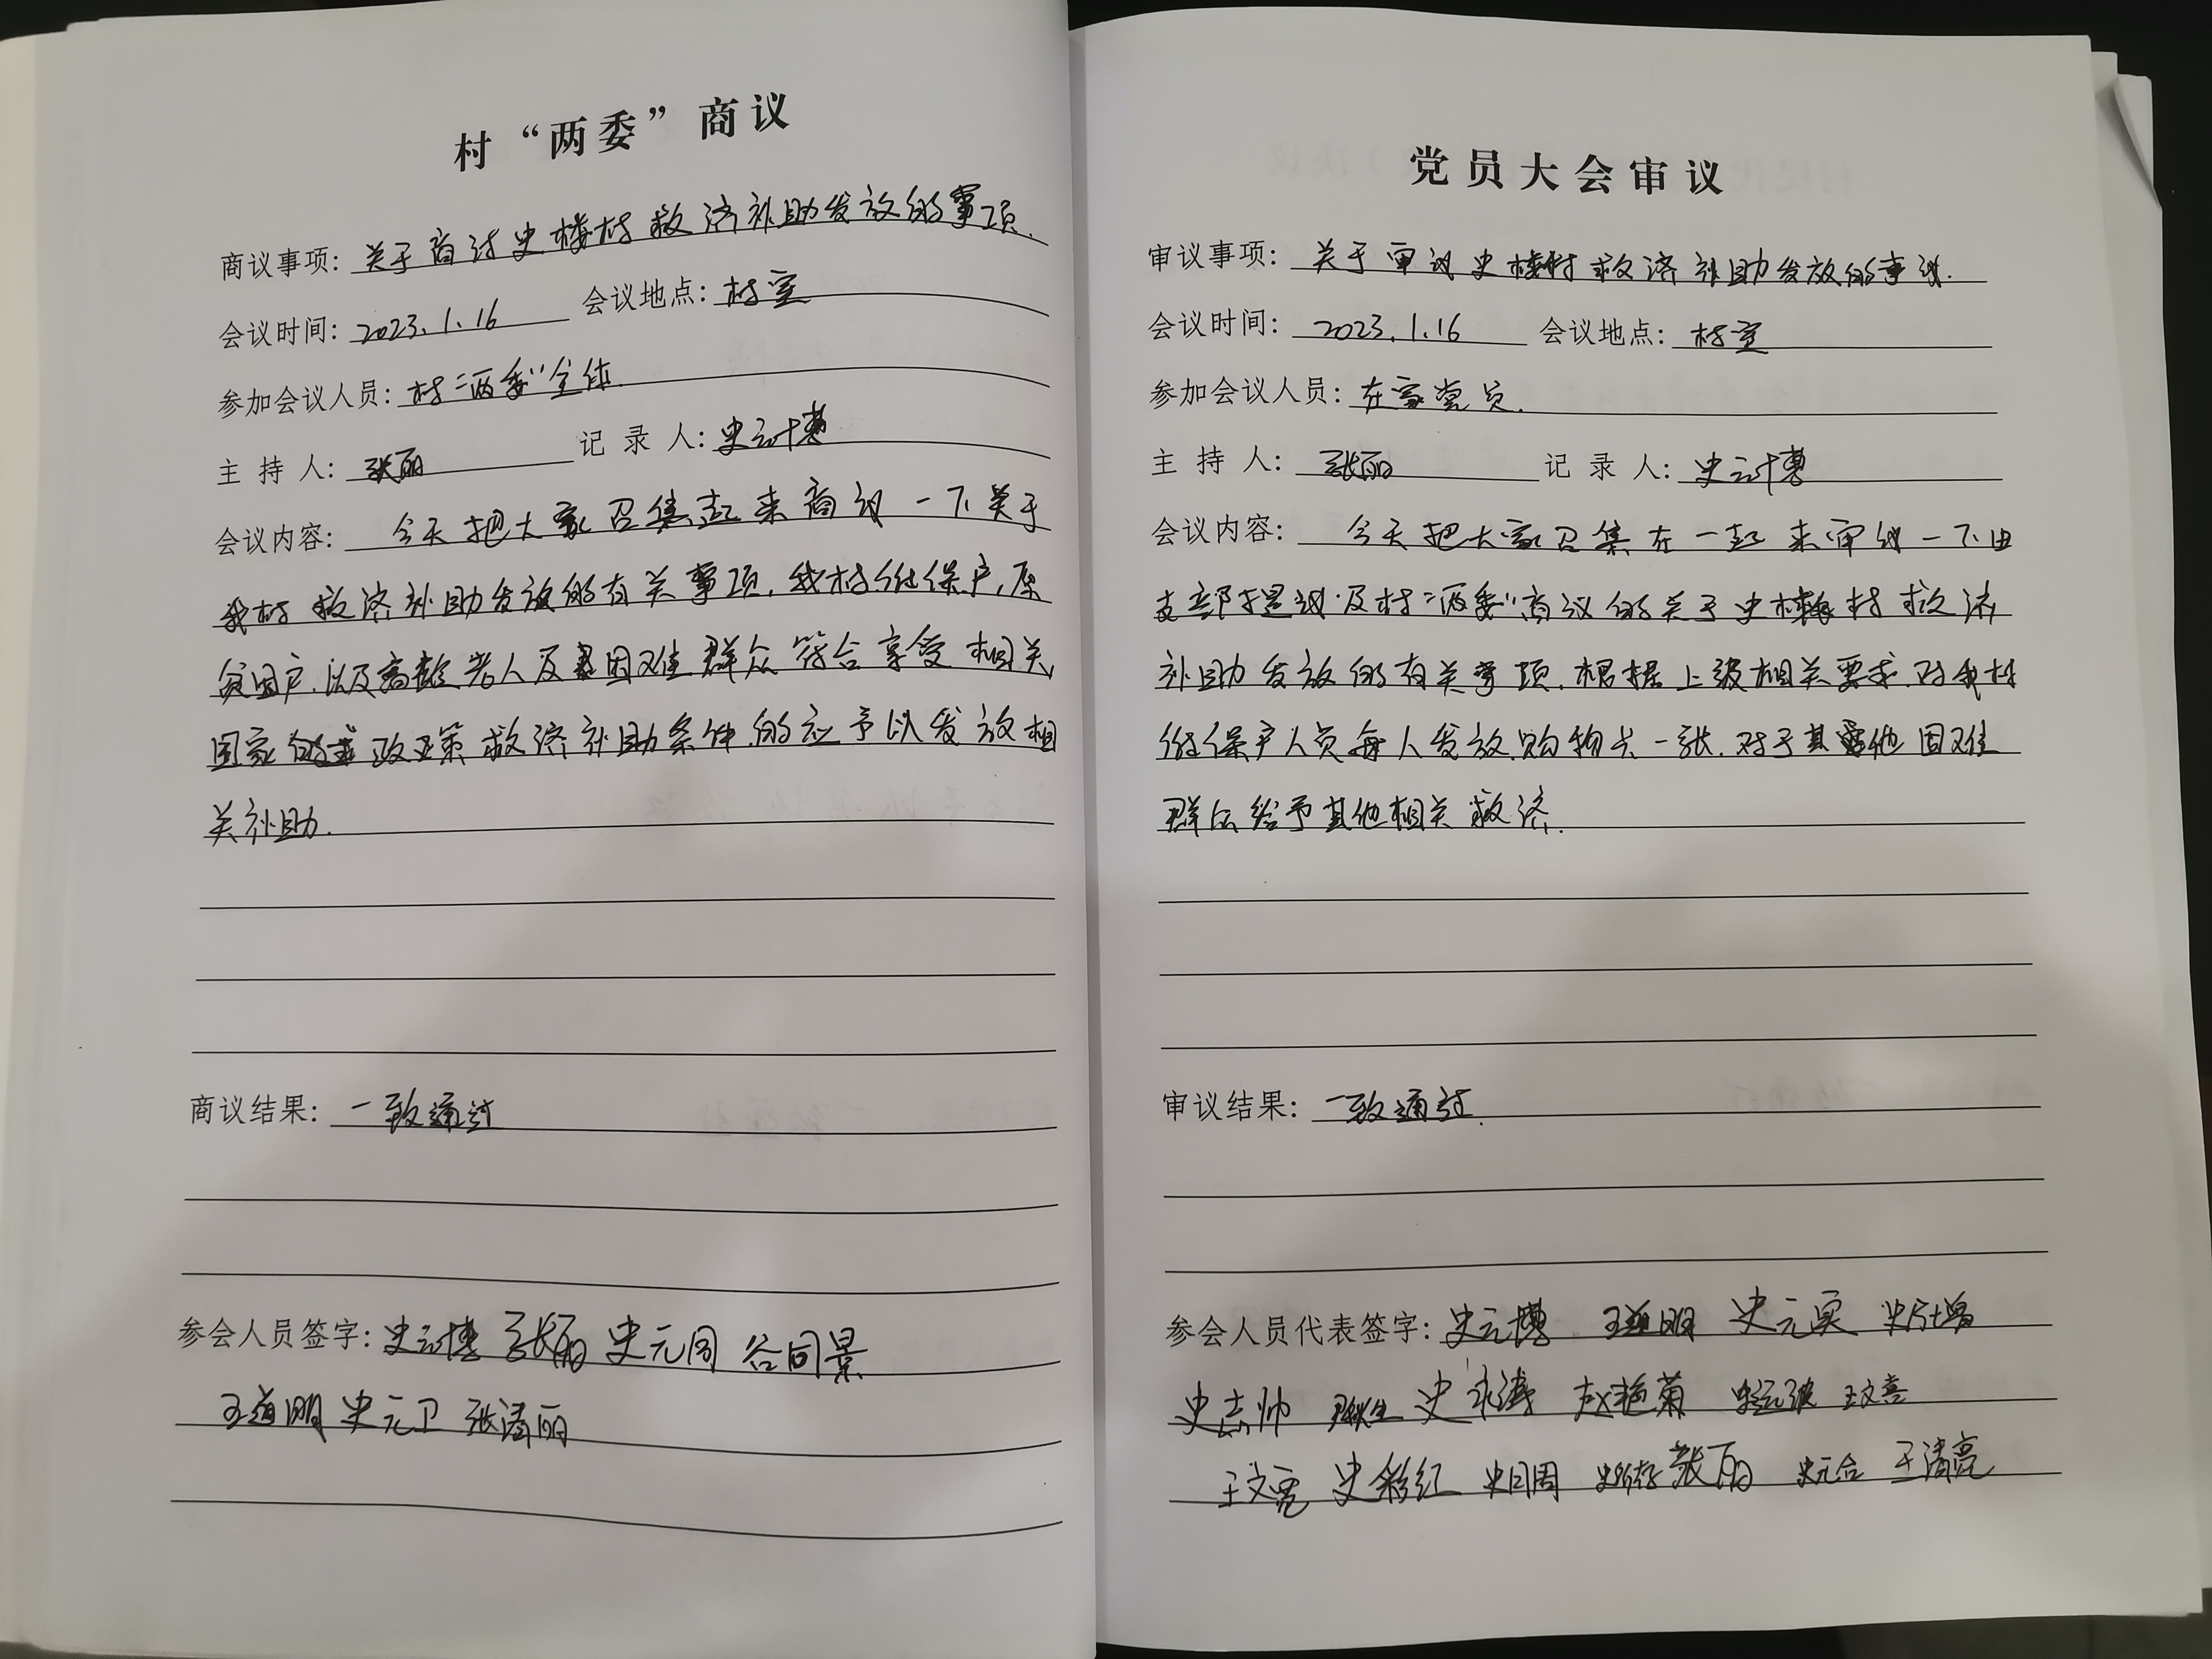 村“两委”商议
商议事项：关于商讨史楼村救济补助发放的事项.
会议时间：2023.1.16 会议地点：村室
参加会议人员：村“两委”全体.
主持人：张丽 记录人：史云博
会议内容：今天把大家召集起来商议一下关于
我村救济补助发放的有关事项，我村低保户，原
贫困户，以及高龄老人及困难群众符合享受相关
国家的政策救济补助条件的应予以发放相
关补助.
商议结果：一致通过
参会人员签字：史云博 张丽 史元同 谷同景
王道明 史元卫 张清丽
党员大会审议
审议事项：关于审议史楼村救济补助发放的事议.
会议时间：2023.1.16 会议地点：村室
参加会议人员：在家党员.
主持人：张丽 记录人：史云博
会议内容：今天把大家召集在一起来审议一下由
支部提议及村“两委”商议的关于史楼村救济
补助发放的有关事项.根据上级相关要求.对我村
低保户人员每人发放购物卡一张.对于其他困难
群众给予其他相关救济.
审议结果：一致通过.
参会人员代表签字：史云博 王道明 史元
史志帅 史 赵艳菊 王文喜
王文亮 史彩红 史同周 张丽 史元合 王清亮